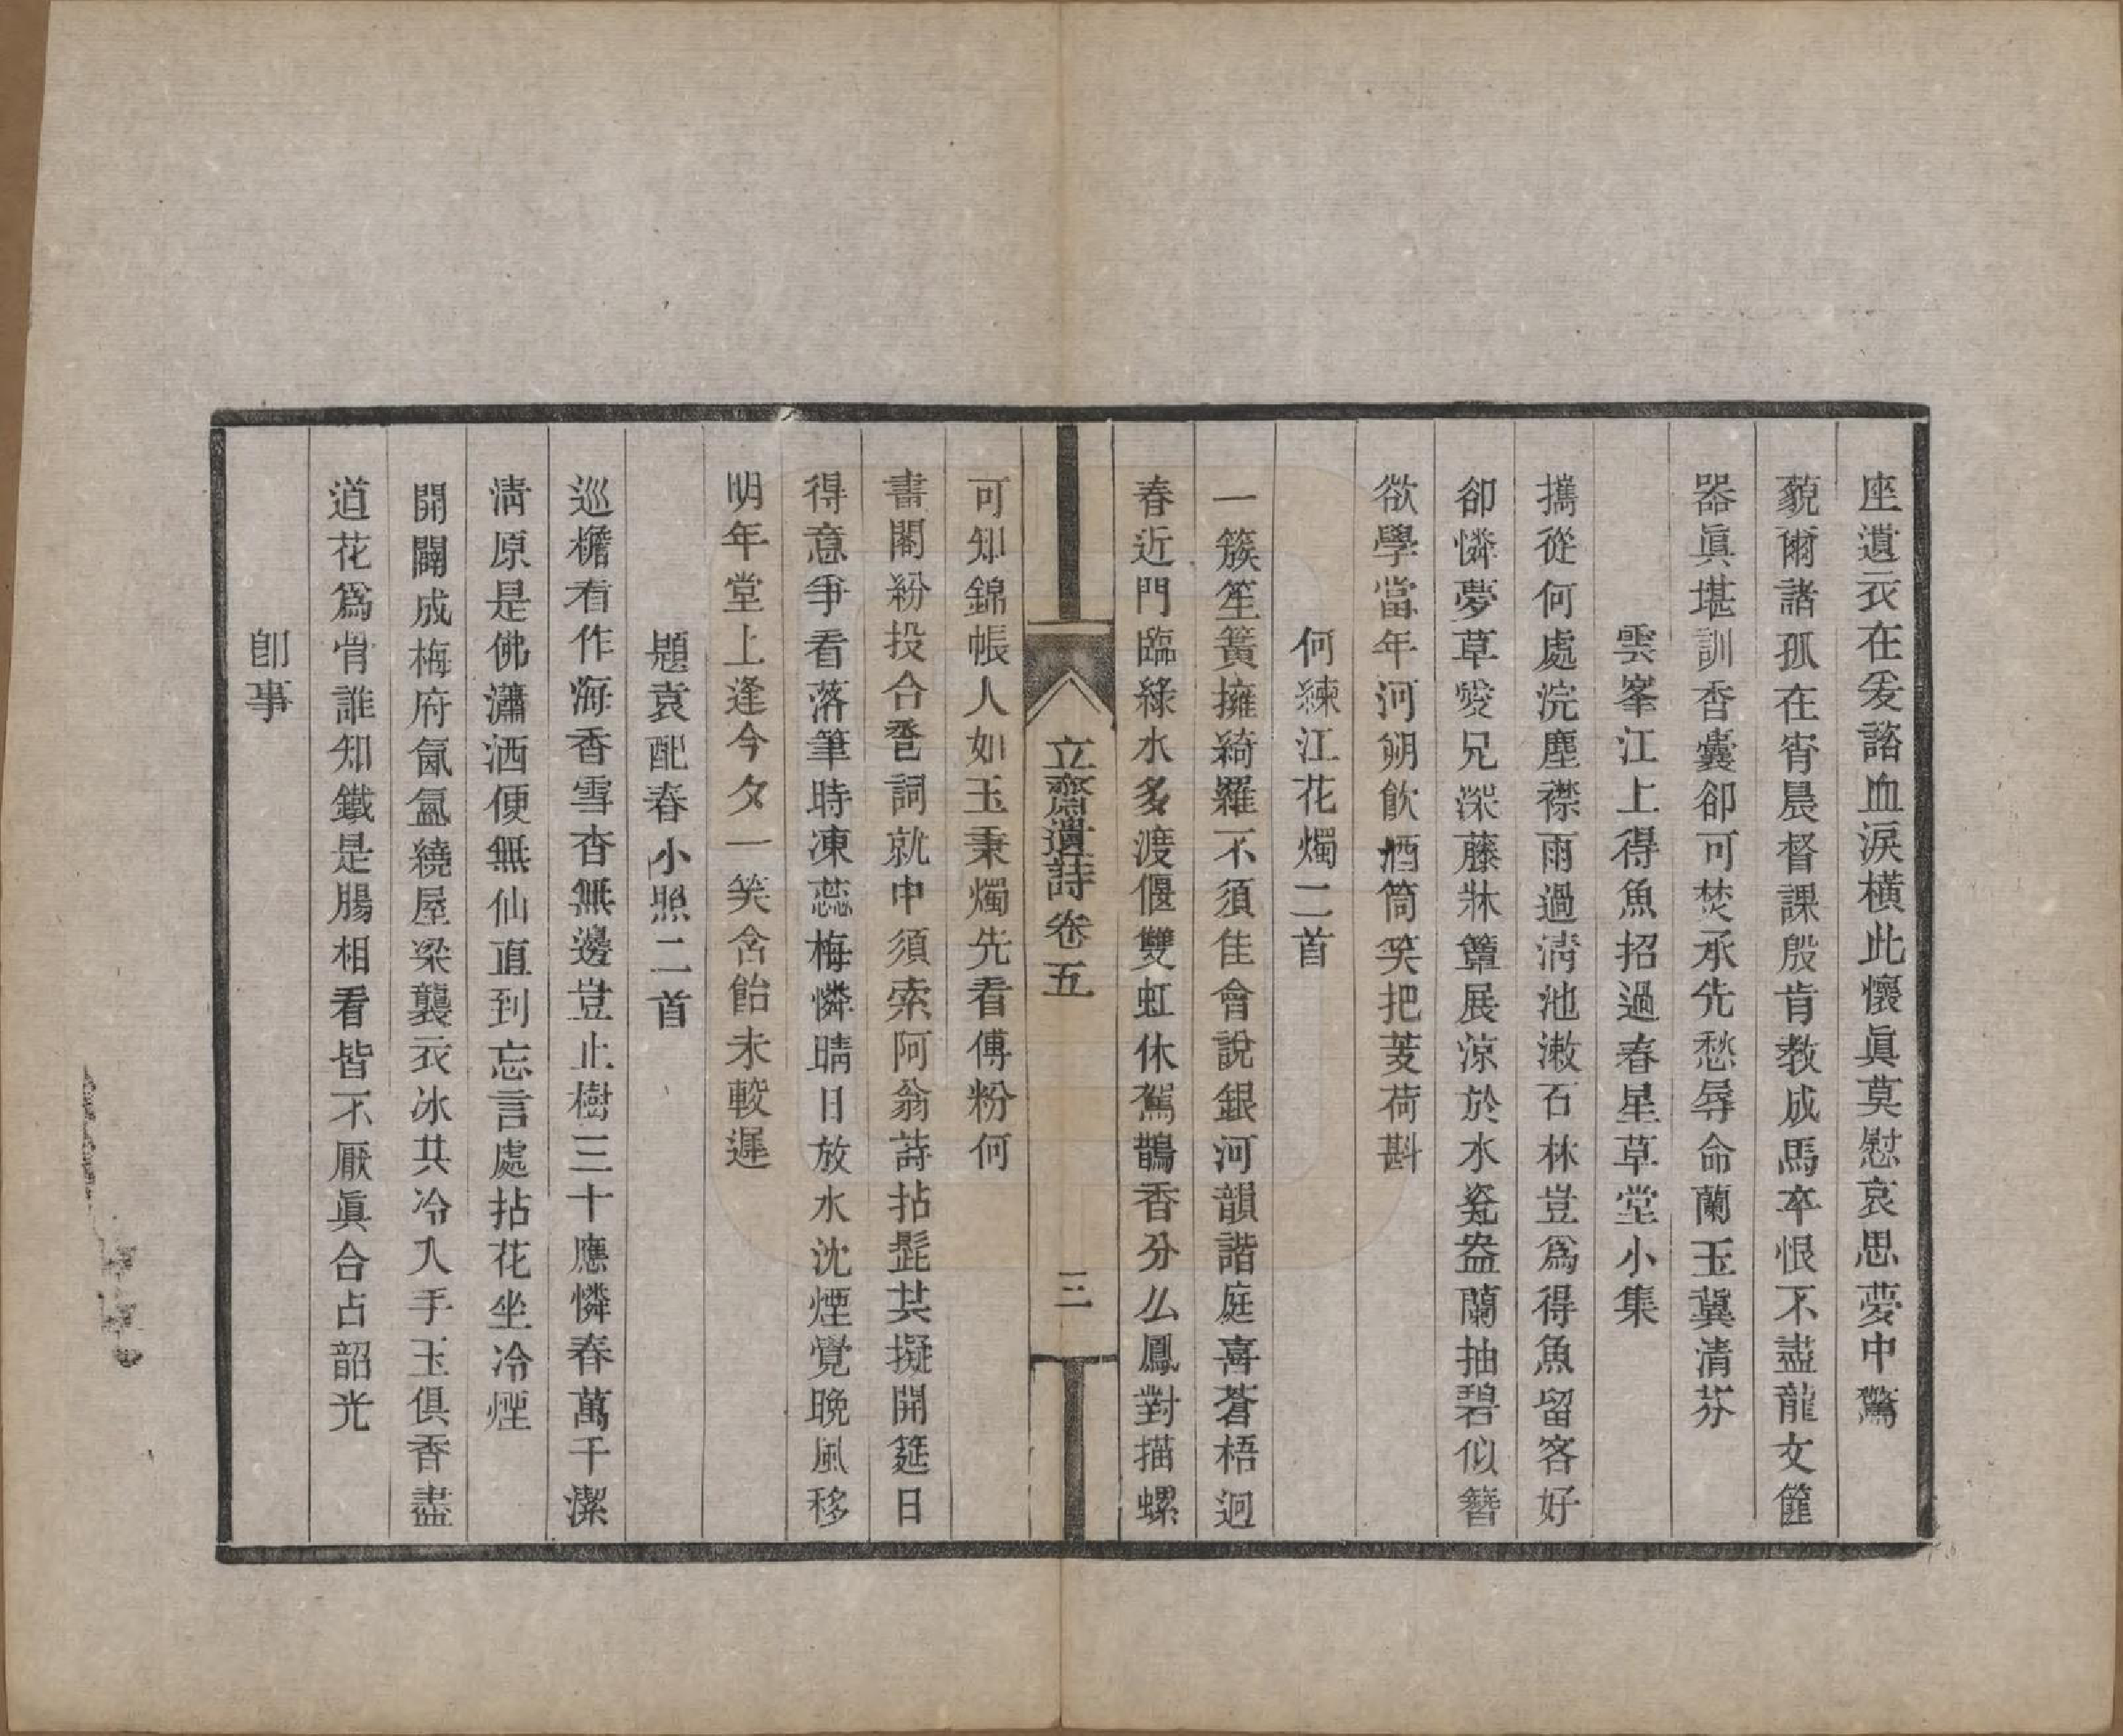 座遺衣在爰諮血涙橫此懷眞莫慰哀思夢中驚
藐爾諸孤在宵晨督課殷肯教成馬卒恨不盡龍文篚
器眞堪訓香囊卻可焚承先愁辱命蘭玉冀清芬
雲峯江上得魚招過春星草堂小集
攜從何處浣塵襟雨過清池漱石林豈爲得魚留客好
卻憐夢草愛兄深藤牀簟展涼於水瓷盎蘭抽碧似簪
欲學當年河朔飲酒筒笑把菱荷斟
何練江花燭二首
一簇笙簧擁綺羅不須佳會說銀河韻諧庭喜蒼梧迥
春近門臨綠水多渡偃雙虹休駕鵲香分么鳳對描螺
立齋遺詩卷五
三
可知錦帳人如玉秉燭先看傅粉何
書閣紛投合卺詞就中須索阿翁詩拈髭其擬開筵日
得意爭看落筆時凍蕊梅憐晴日放水沈煙覺晚風移
明年堂上逢今夕一笑含飴未較遲
題袁配春小照二首
巡檐看作海香雪杳無邊豈止樹三十應憐春萬千潔
清原是佛瀟洒便無仙直到忘言處拈花坐冷煙
開闢成梅府氤氳繞屋梁襲衣冰共冷入手玉俱香盡
道花爲骨誰知鐵是腸相看皆不厭眞合占韶光
卽事